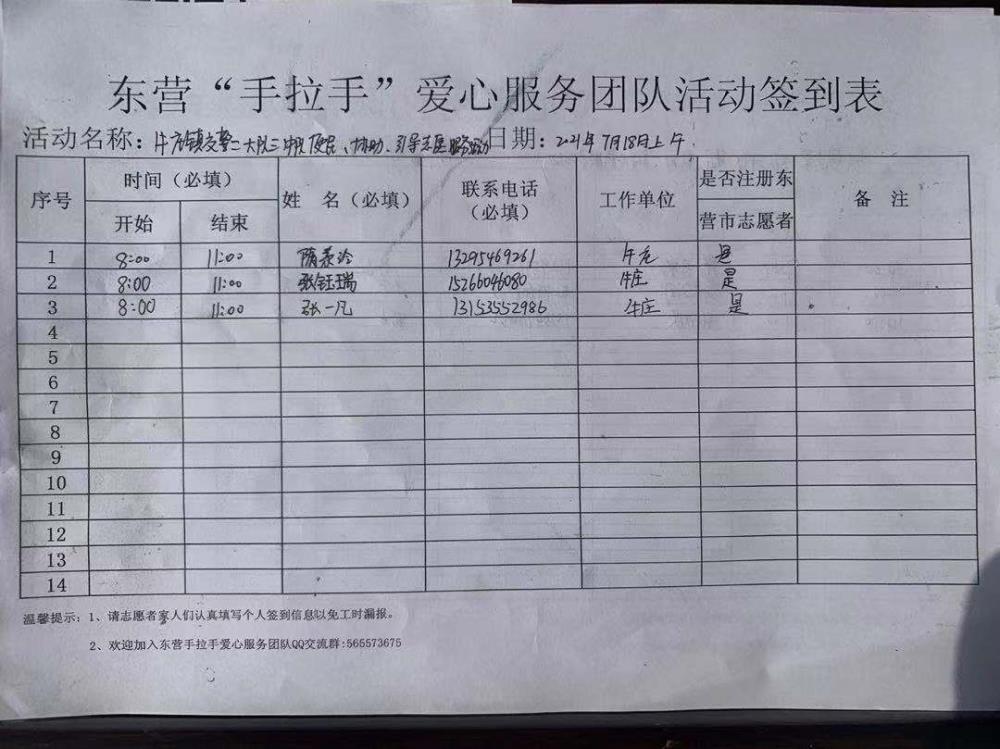 东营“手拉手”爱心服务团队活动签到表
活动名称：牛庄镇交警二大队三中队便民、协助、引导志愿服务活动 日期：2021年7月18日上午
序号 时间（必填） 姓 名（必填） 联系电话（必填） 工作单位 是否注册东营市志愿者 备 注
开始 结束
1 8:00 11:00 隋 玲 13295469261 牛庄 是
2 8:00 11:00 张钰瑞 15266046080 牛庄 是
3 8:00 11:00 张一凡 13153552986 牛庄 是
4
5
6
7
8
9
10
11
12
13
14
温馨提示：1、请志愿者家人们认真填写个人签到信息以免工时漏报。
2、欢迎加入东营手拉手爱心服务团队QQ交流群:565573675